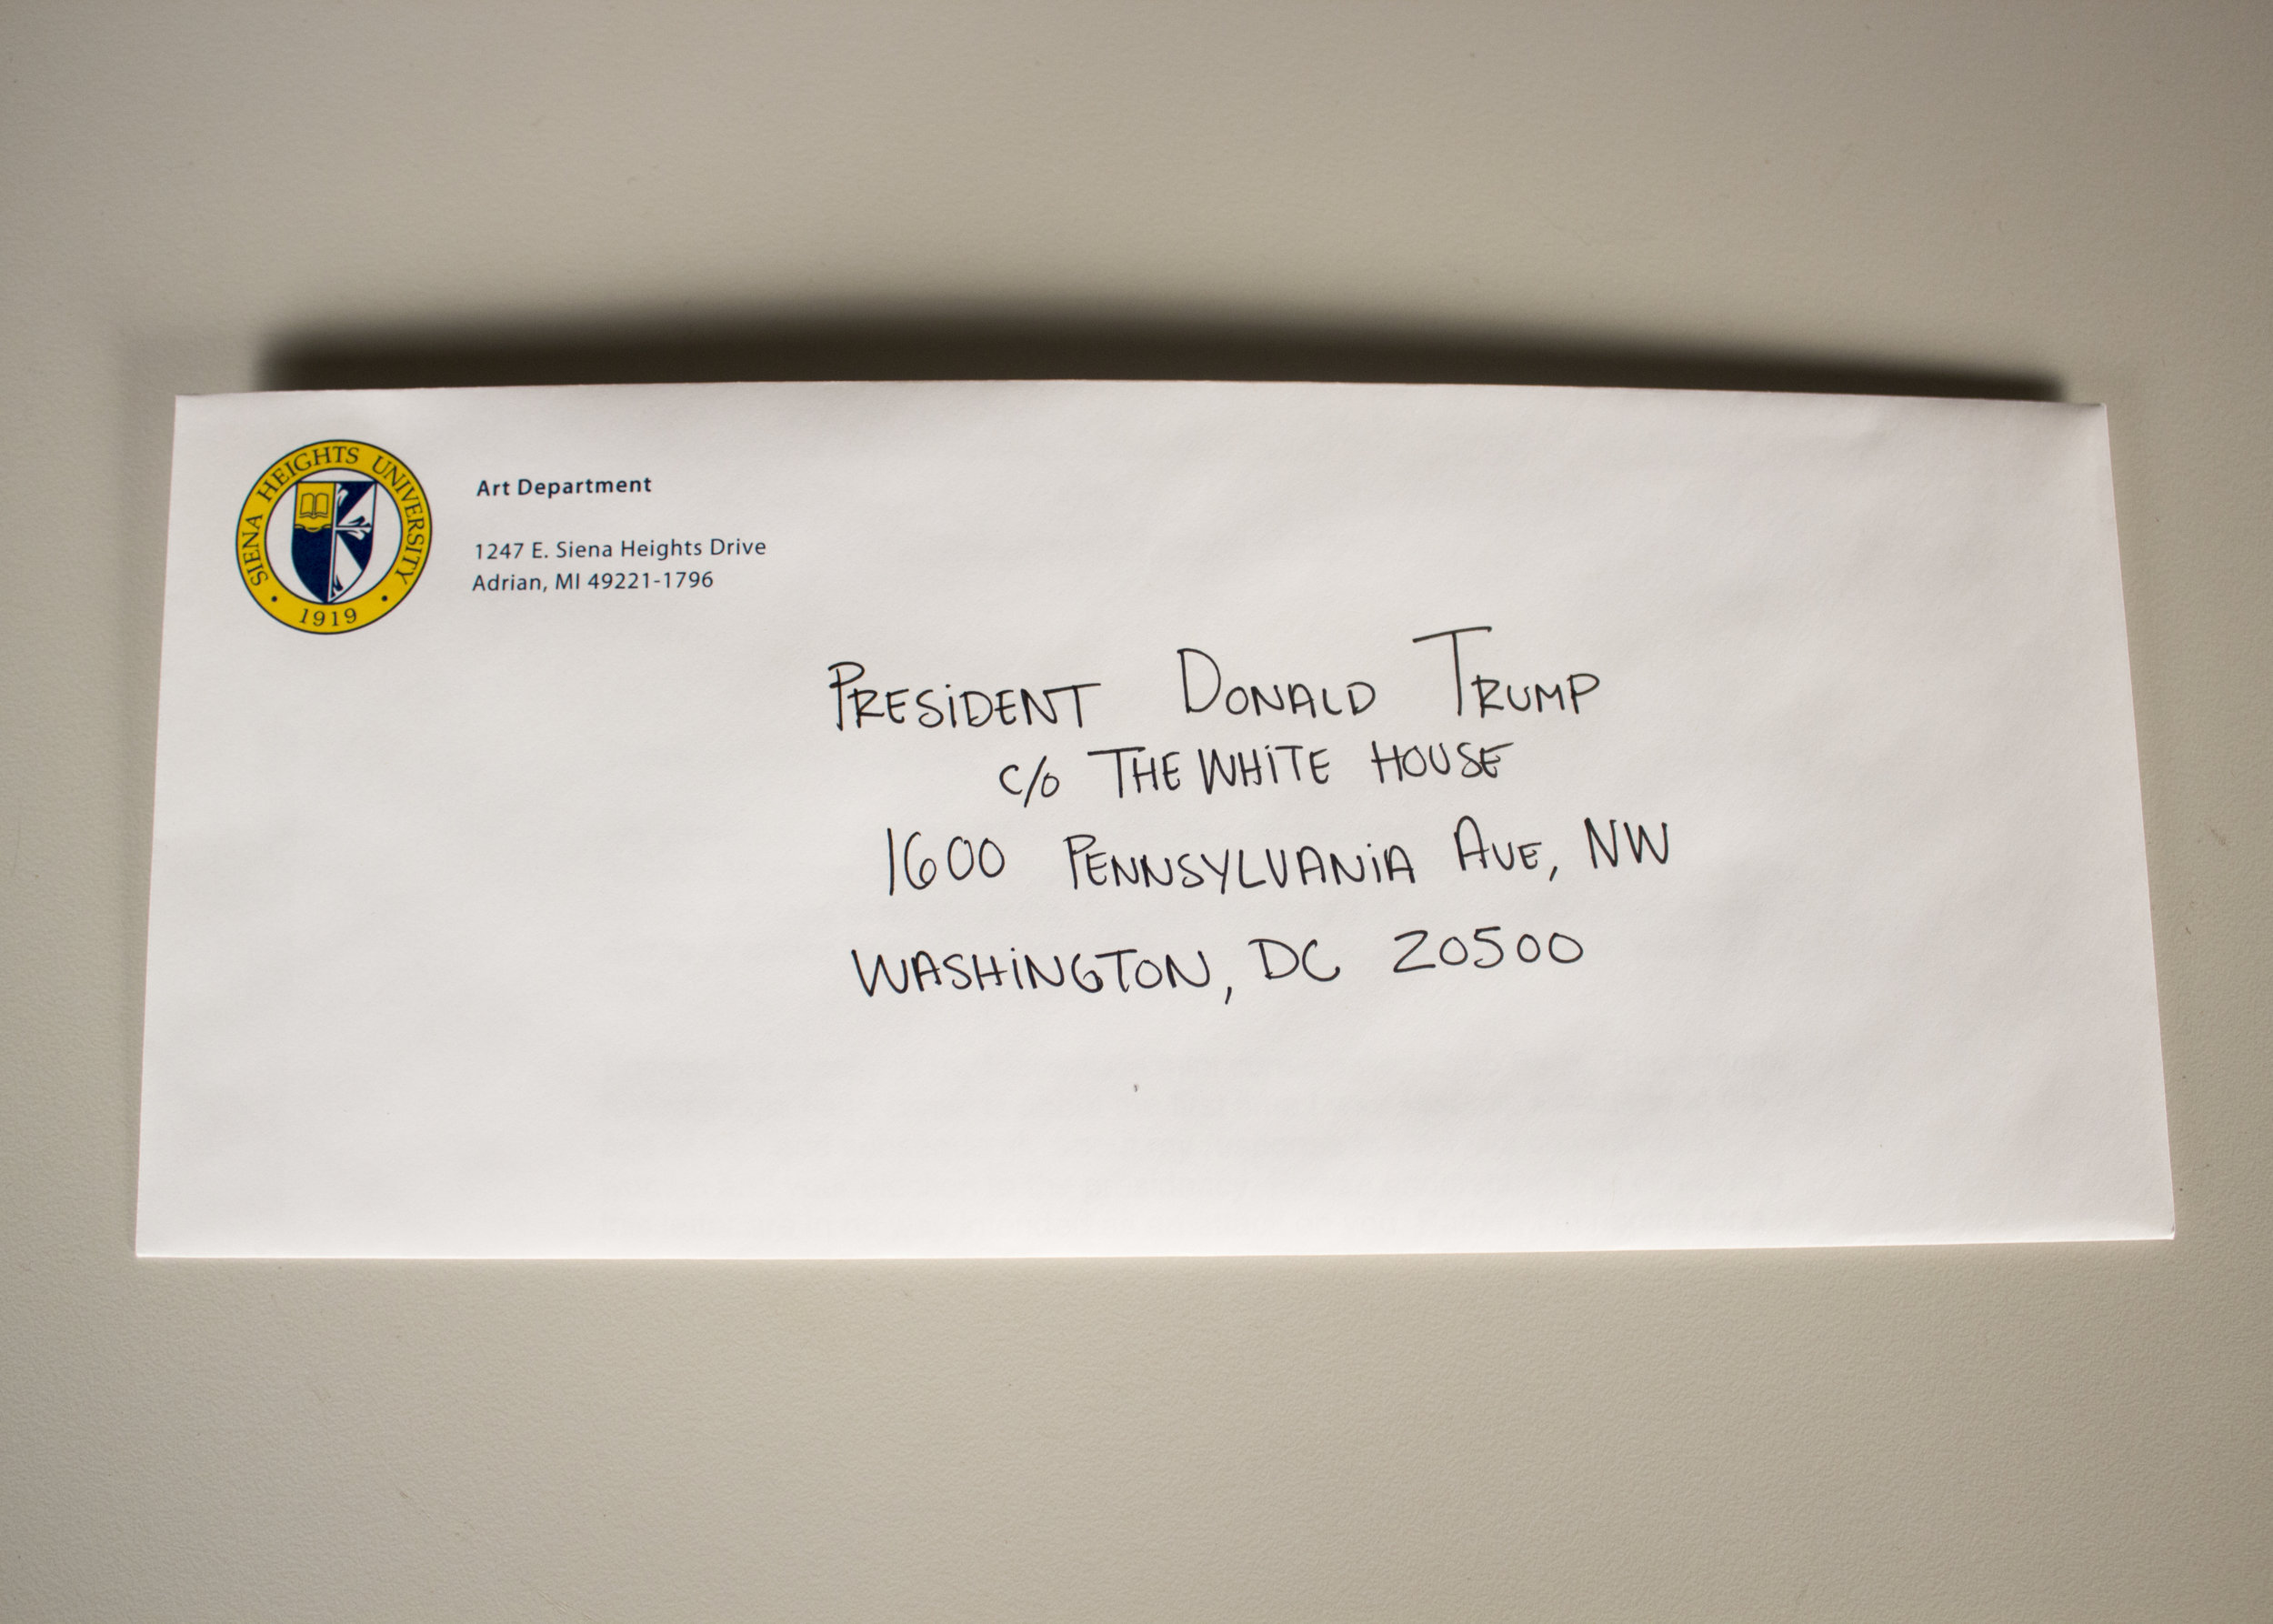 SIENA HEIGHTS UNIVERSITY
• 1919 •
Art Department
1247 E. Siena Heights Drive
Adrian, MI 49221-1796
PRESiDENT DONALD TRUMP
c/o THE WHiTE HOUSE
1600 PENNSYLVANiA AVE, NW
WASHiNGTON, DC 20500